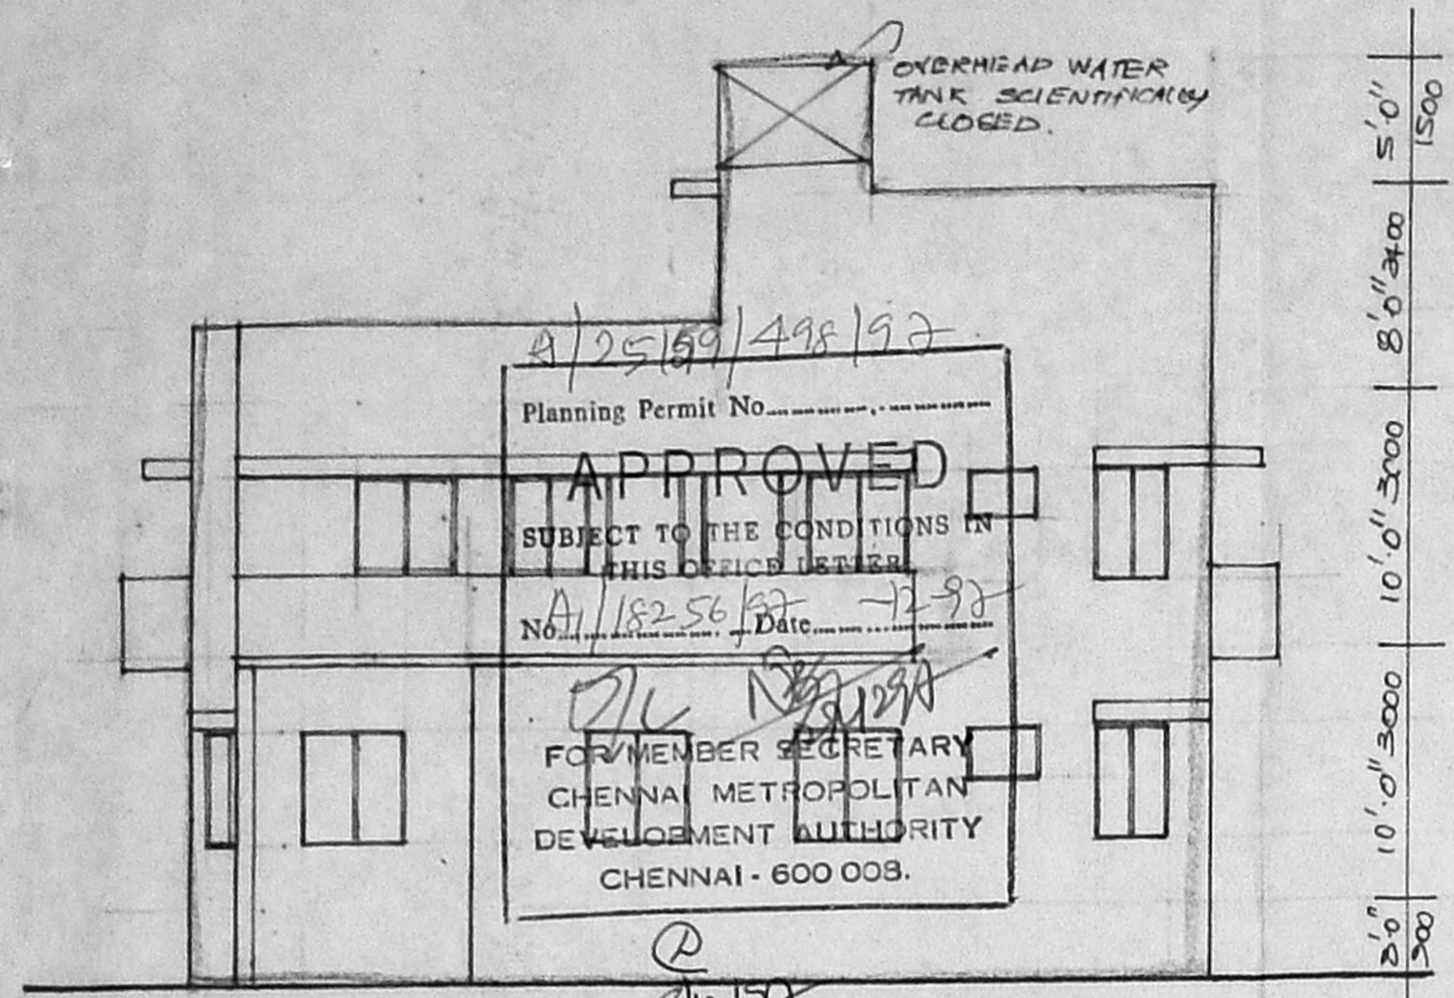 OVERHEAD WATER
TANK SCIENTIFICALLY
CLOSED.
5'.0" 1500
8'.0" 2400
10'.0" 3000
10'.0" 3000
900
Planning Permit No.
APPROVED
SUBJECT TO THE CONDITIONS IN
THIS OFFICE LETTER
No. A1/18256/97 Date -12-97
FOR MEMBER SECRETARY
CHENNAI METROPOLITAN
DEVELOPMENT AUTHORITY
CHENNAI - 600 008.